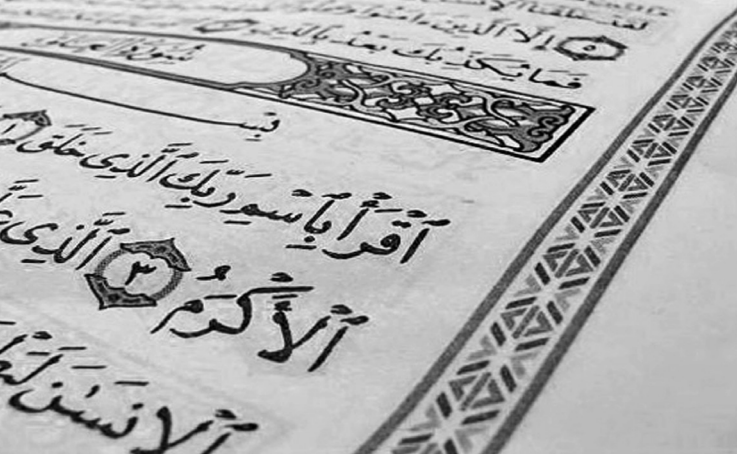 إِلَّا ٱلَّذِينَ ءَامَنُوا۟
٥
فَمَا يُكَذِّبُكَ بَعْدُ بِٱلدِّينِ
سُورَةُ العَلَق
بِسْـ
ٱقْرَأْ بِٱسْمِ رَبِّكَ ٱلَّذِى خَلَقَ ١
ٱلْأَكْرَمُ ٣ ٱلَّذِى
ٱلْإِنسَٰنَ